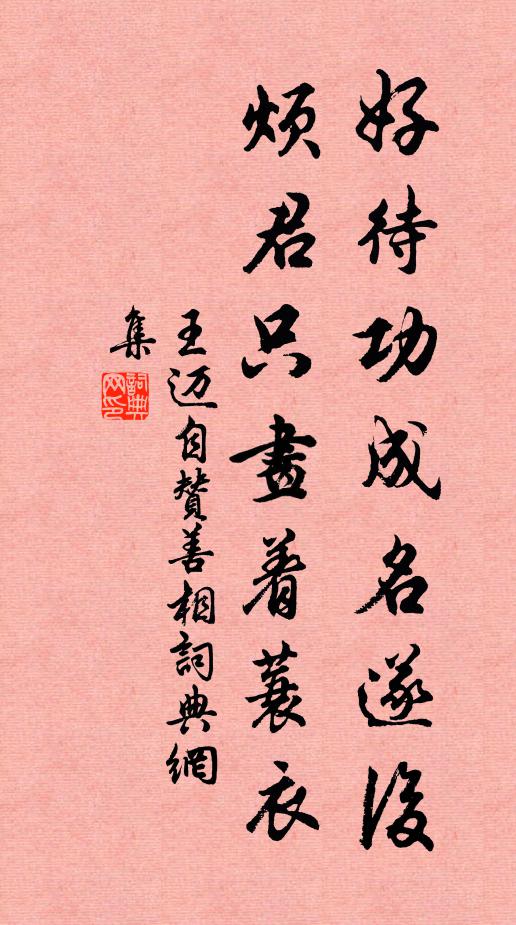 好待功成名遂後
煩君只畫着蓑衣
王迈自贊善相詞典網
集
詞典
网印